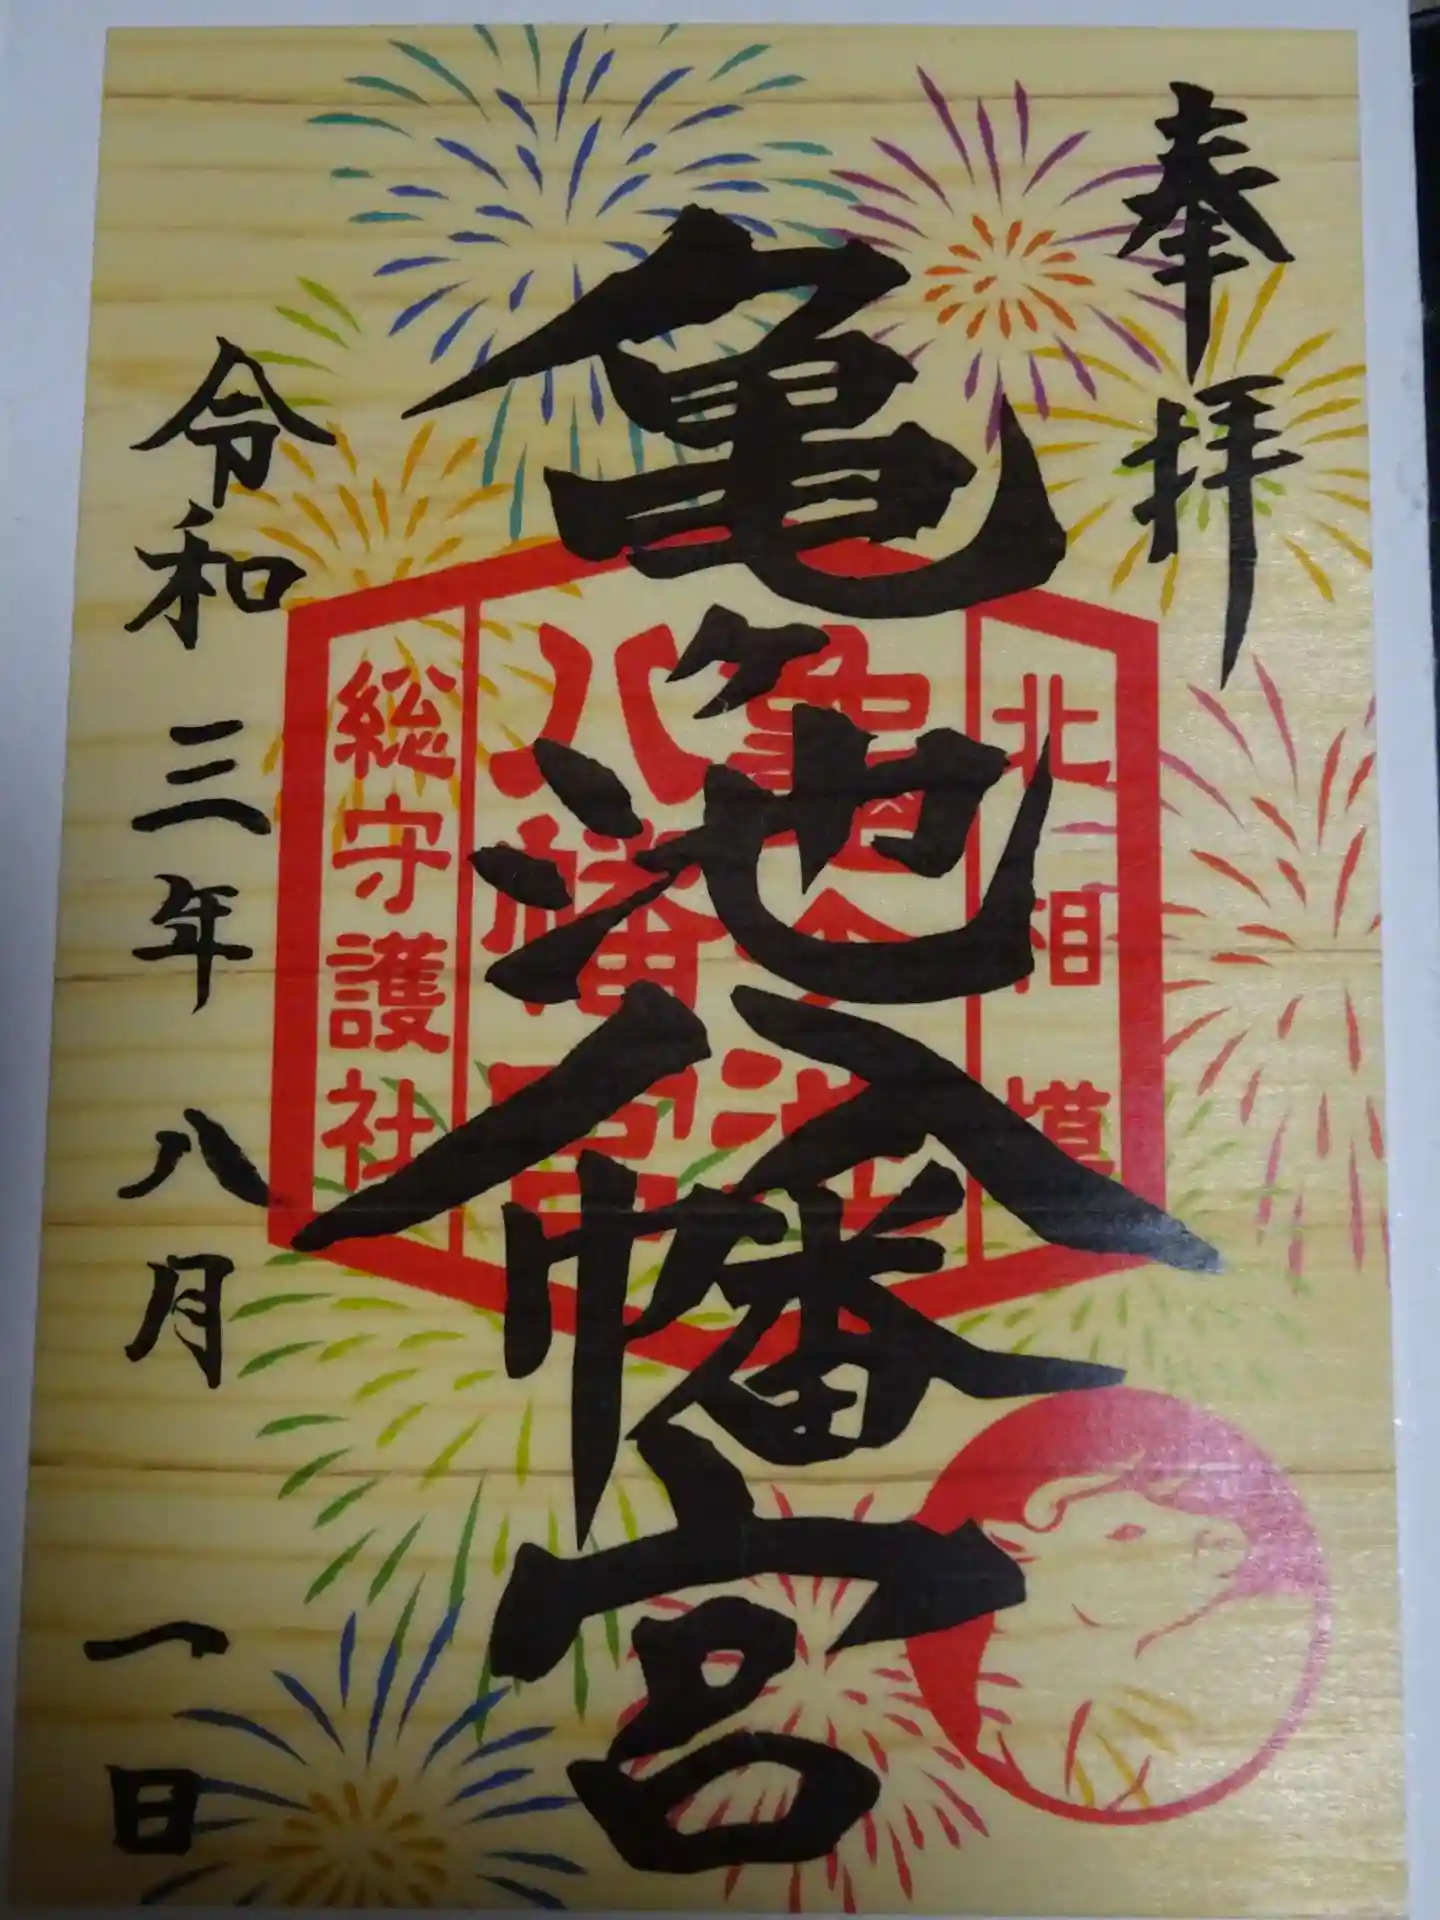 奉拝
北相模
亀ヶ池八幡宮
亀ヶ池
八幡宮
総守護社
令和三年八月一日